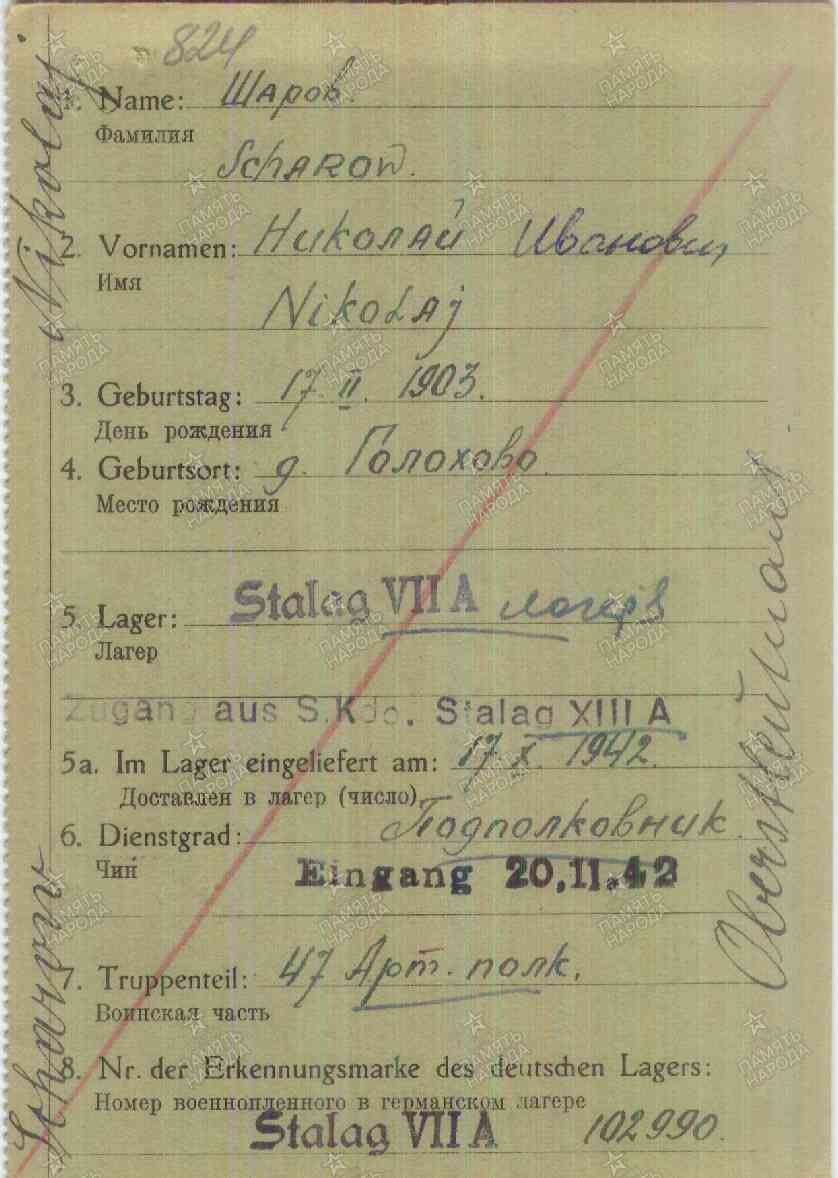 824
1. Name: Шаров.
Фамилия
Scharow.
2. Vornamen: Николай Иванович
Имя
Nikolaj
3. Geburtstag: 17. II. 1903.
День рождения
4. Geburtsort: д. Голохово.
Место рождения
5. Lager: Stalag VII A лагерь
Лагер
Zugang aus S.Kdo. Stalag XIII A
5a. Im Lager eingeliefert am: 17. X. 1942.
Доставлен в лагер (число)
6. Dienstgrad: Подполковник.
Чин
Eingang 20.11.42
7. Truppenteil: 47 Арт. полк.
Воинская часть
8. Nr. der Erkennungsmarke des deutschen Lagers:
Номер военнопленного в германском лагере
Stalag VII A 102990.
Scharow Nikolaj
Oberstleutnant
ПАМЯТЬ НАРОДА